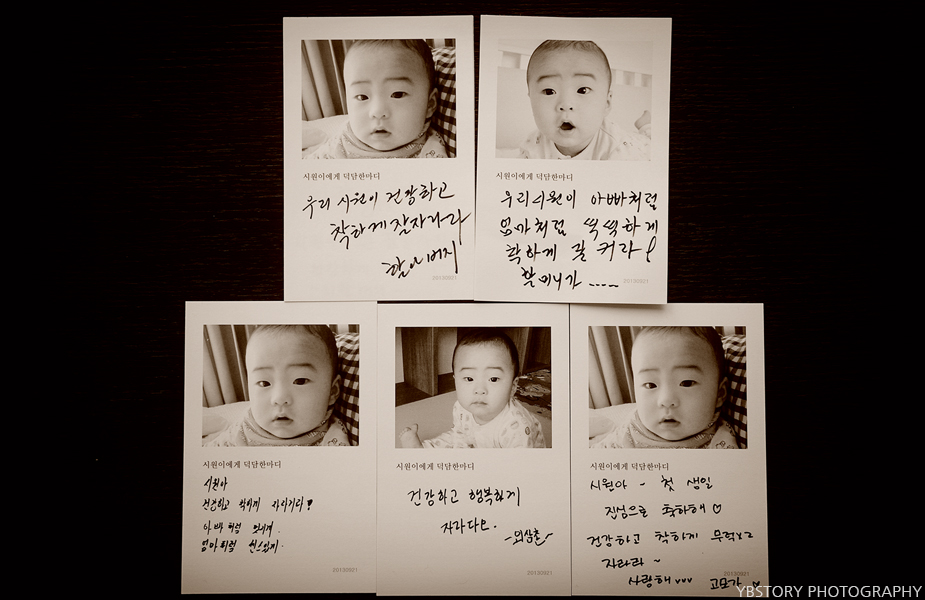 시원이에게 덕담한마디
우리 시원이 건강하고
착하게 잘자라라
할아버지
20130921
시원이에게 덕담한마디
우리시원이 아빠처럼
엄마처럼 씩씩하게
착하게 잘 커라
할머니가 .....
20130921
시원이에게 덕담한마디
시원아
건강하고 착하게 자라거라!
아빠처럼 멋지게
엄마처럼 센스있게.
20130921
시원이에게 덕담한마디
건강하고 행복하게
자라다오.
-외삼촌-
20130921
시원이에게 덕담한마디
시원아 - 첫 생일
진심으로 축하해 ♡
건강하고 착하게 무럭x2
자라라 ~
사랑해 ♥♥♥ 고모가 ♥
20130921
YBSTORY PHOTOGRAPHY